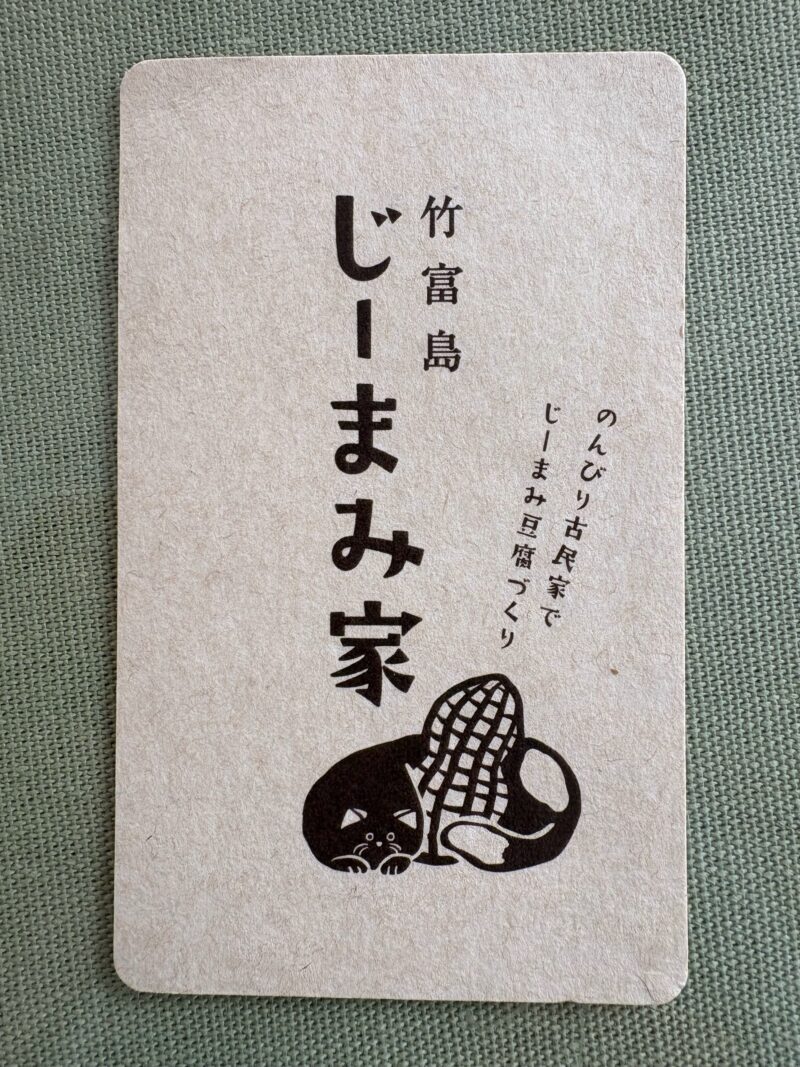 竹富島
じーまみ家
のんびり古民家で
じーまみ豆腐づくり